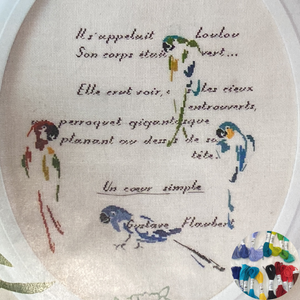 Il s'appelait Loulou
Son corps était vert...
Elle crut voir, les cieux
entrouverts,
perroquet gigantesque
planant au dessus de sa
tête.
Un cœur simple
Gustave Flaubert